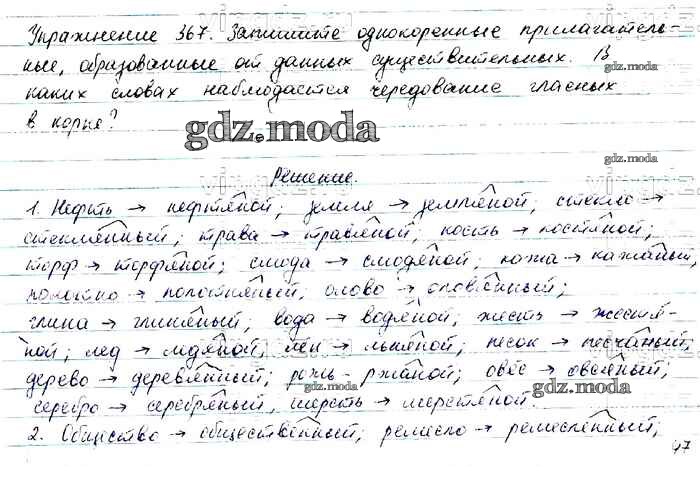 Упражнение 367. Запишите однокоренные прилагатель-
ные, образованные от данных существительных. В
каких словах наблюдается чередование гласных
в корне?
gdz.moda
gdz.moda
gdz.moda
Решение
1. Нефть → нефтяной; земля → земляной; стекло →
стеклянный; трава → травяной; кость → костяной;
торф → торфяной; смола → смоляной; кожа → кожаный,
полотно → полотняный; олово → оловянный;
глина → глиняный; вода → водяной; жесть → жестя-
ной; лёд → ледяной; лён → льняной; песок → песчаный;
дерево → деревянный; рожь - ржаной; овёс → овсяный;
gdz.moda
серебро → серебряный, шерсть → шерстяной.
2. Общество → общественный; ремесло → ремесленный;
47